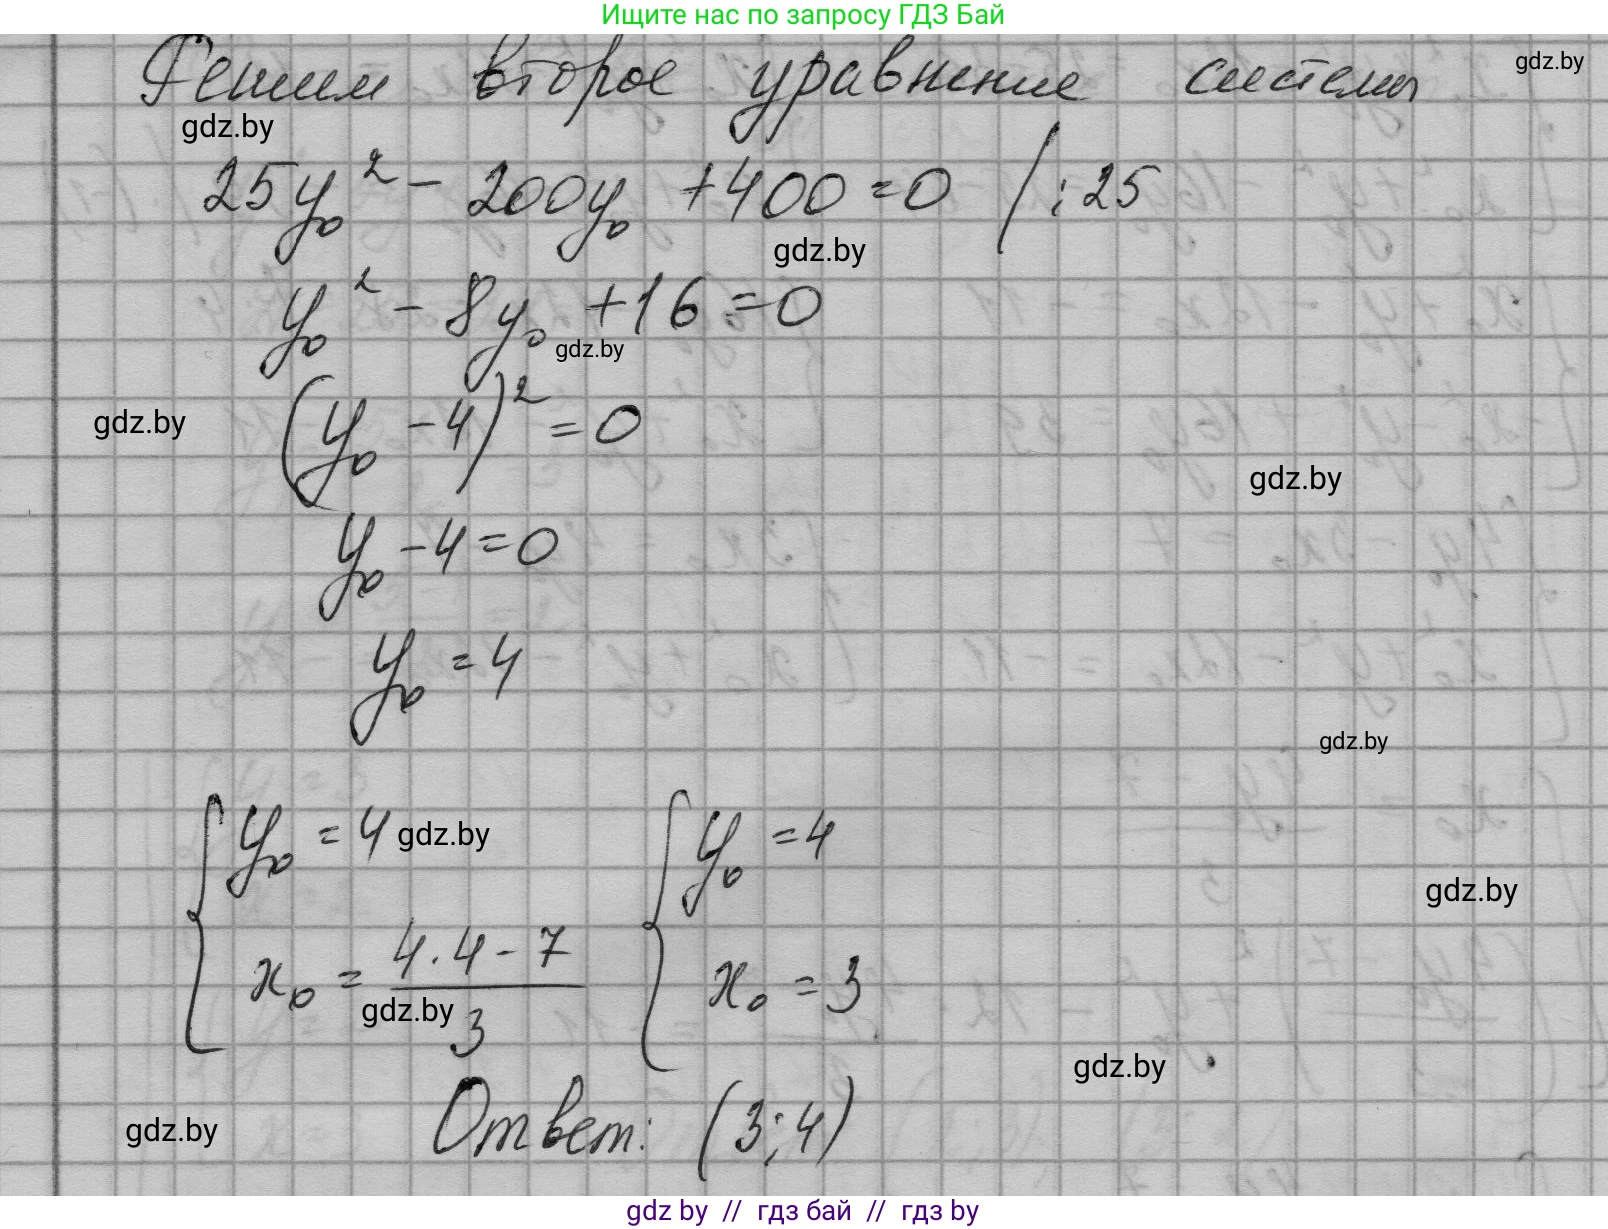 Ищите нас по запросу ГДЗ Бай
Решим второе уравнение системы
gdz.by
gdz.by
25y₀² - 200y₀ + 400 = 0 / : 25
gdz.by
y₀² - 8y₀ + 16 = 0
gdz.by
(y₀ - 4)² = 0
gdz.by
gdz.by
y₀ - 4 = 0
y₀ = 4
gdz.by
{ y₀ = 4 { y₀ = 4
gdz.by
gdz.by
x₀ = (4 · 4 - 7) / 3 x₀ = 3
gdz.by
gdz.by
Ответ: (3; 4)
gdz.by
gdz by // гдз бай // гдз by